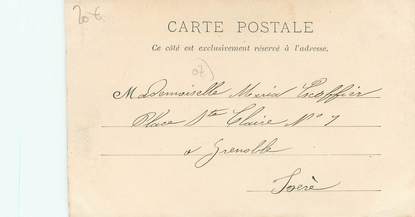 20 €
CARTE POSTALE
Ce côté est exclusivement réservé à l'adresse.
Mademoiselle Maria Escoffier
Place Ste Claire No 7
à Grenoble
Isère